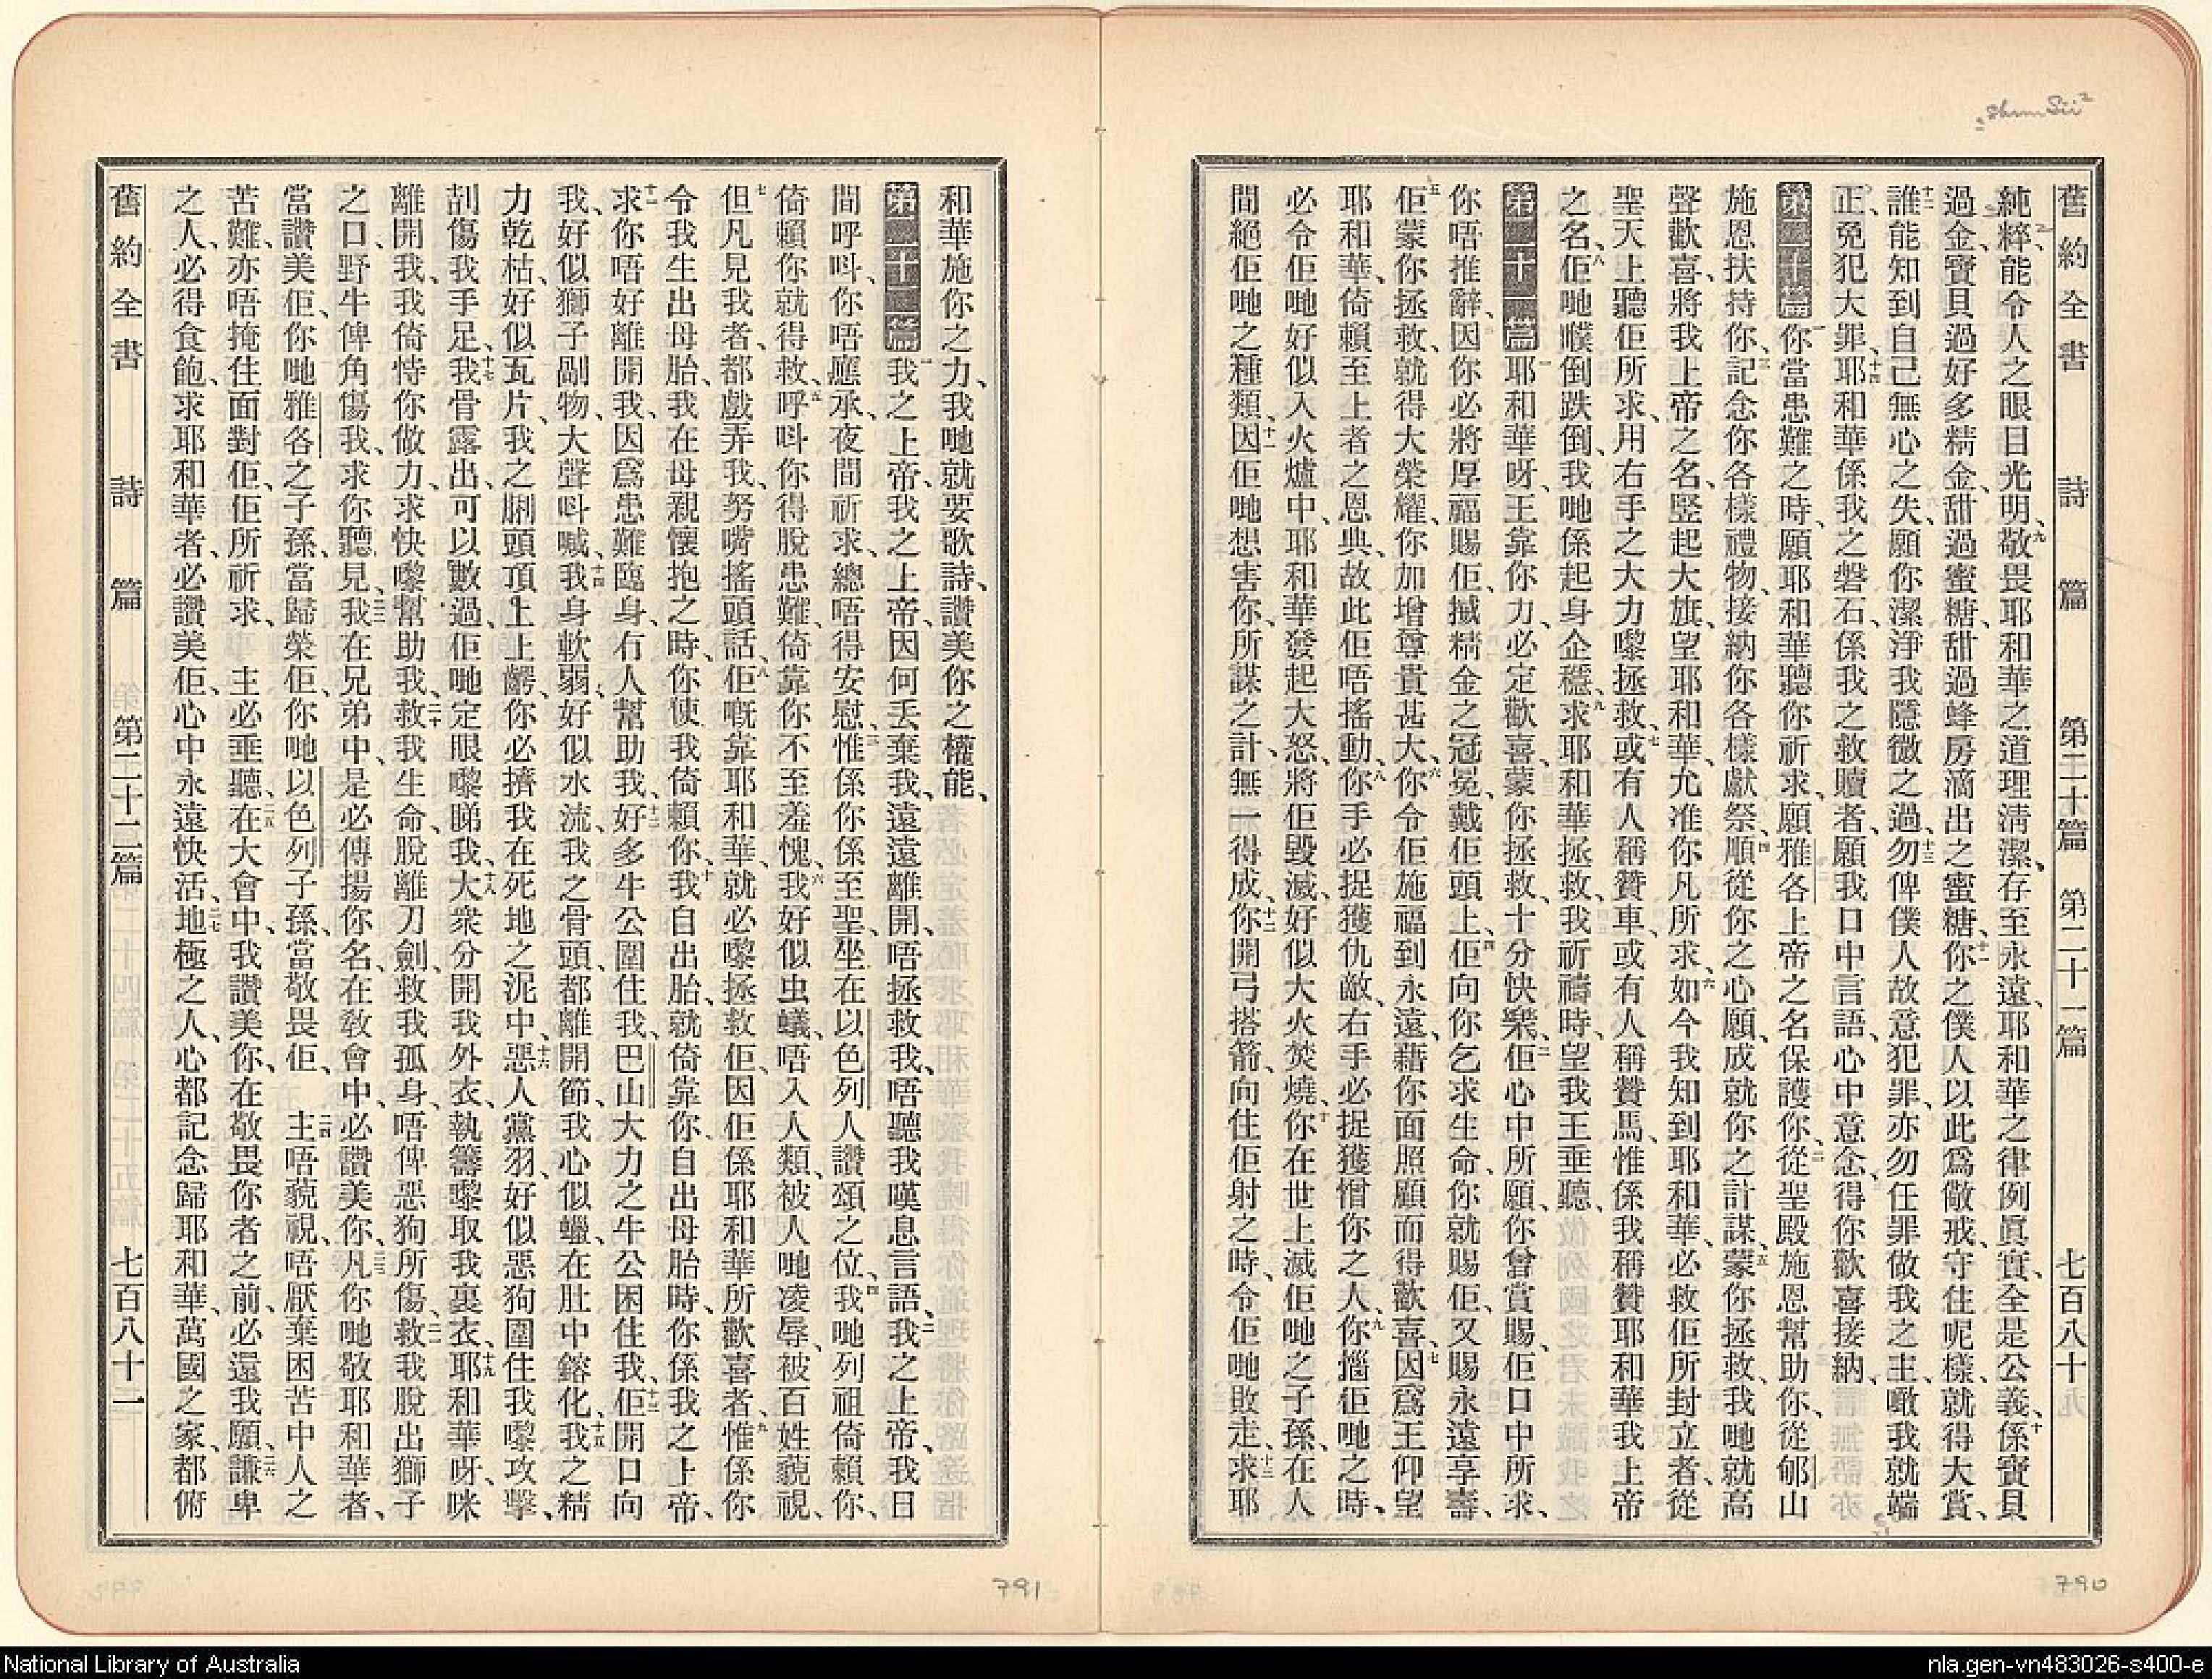 舊約全書 詩 篇 第二十篇 第二十一篇 七百八十
純粹、能令人之眼目光明、九敬畏耶和華之道理淸潔、存至永遠、耶和華之律例眞實、全是公義、十係寶貝
過金、寶貝過好多精金、甜過蜜糖、甜過蜂房滴出之蜜糖、十一你之僕人以此爲儆戒、守住呢樣、就得大賞、
十二誰能知到自己無心之失、願你潔淨我隱微之過、十三勿俾僕人故意犯罪、亦勿任罪做我之主、噉我就端
正、免犯大罪、十四耶和華係我之磐石、係我之救贖者、願我口中言語、心中意念、得你歡喜接納、
第二十篇 一你當患難之時、願耶和華聽你祈求、願雅各上帝之名保護你、二從聖殿施恩幫助你、從郇山
施恩扶持你、三記念你各樣禮物、接納你各樣獻祭、四順從你之心願、成就你之計謀、五蒙你拯救、我哋就高
聲歡喜、將我上帝之名、竪起大旗、望耶和華、允准你凡所求、六如今我知到耶和華、必救佢所封立者、從
聖天上聽佢所求、用右手之大力嚟拯救、七或有人稱贊車、或有人稱贊馬、惟係我稱贊耶和華我上帝
之名、八佢哋㒒倒跌倒、我哋係起身企穩、九求耶和華拯救、我祈禱時、望我王垂聽、
第二十一篇 一耶和華呀、王靠你力、必定歡喜、蒙你拯救、十分快樂、二佢心中所願、你曾賞賜、佢口中所求、
你唔推辭、三因你必將厚福賜佢、搣精金之冠冕、戴佢頭上、四佢向你乞求生命、你就賜佢、又賜永遠享壽、
五佢蒙你拯救、就得大榮耀、你加增尊貴甚大、六你令佢施福到永遠、藉你面照顧而得歡喜、七因爲王仰望
耶和華、倚賴至上者之恩典、故此佢唔搖動、八你手必捉獲仇敵、右手必捉獲憎你之人、九你搵佢哋之時、
必令佢哋好似入火爐中、耶和華發起大怒、將佢毀滅、好似大火焚燒、十你在世上滅佢哋之子孫、在人
間絕佢哋之種類、十一因佢哋想害你、所謀之計、無一得成、十二你開弓搭箭、向住佢射之時、令佢哋敗走、十三求耶
和華施你之力、我哋就要歌詩、讚美你之權能、
第二十二篇 一我之上帝、我之上帝、因何丟棄我、遠遠離開、唔拯救我、唔聽我嘆息言語、二我之上帝、我日
間呼呌、你唔應承、夜間祈求、總唔得安慰、三惟係你係至聖、坐在以色列人讚頌之位、四我哋列祖倚賴你、
倚賴你就得救、五呼呌你得脫患難、倚靠你不至羞愧、六我好似虫蟻、唔入人類、被人哋凌辱、被百姓藐視、
七但凡見我者、都戲弄我、努嘴搖頭話、八佢嘅靠耶和華、就必嚟拯救佢、因佢係耶和華所歡喜者、九惟係你
令我生出母胎、我在母親懷抱之時、你使我倚賴你、十我自出胎、就倚靠你、自出母胎時、你係我之上帝、
十一求你唔好離開我、因爲患難臨身、冇人幫助我、十二好多牛公圍住我、巴山大力之牛公困住我、十三佢開口向
我、好似獅子副物、大聲呌喊、十四我身軟弱、好似水流、我之骨頭、都離開節、我心似蠟、在肚中鎔化、十五我之精
力乾枯、好似瓦片、我之脷頭頂上上齶、你必擠我在死地之泥中、十六惡人黨羽、好似惡狗圍住我嚟攻擊、
剖傷我手足、十七我骨露出、可以數過、佢哋定眼嚟睇我、十八大衆分開我外衣、執籌嚟取我裏衣、十九耶和華呀、咪
離開我、我倚恃你做力、求快嚟幫助我、二十救我生命、脫離刀劍、救我孤身、唔俾惡狗所傷、二一救我脫出獅子
之口、野牛俾角傷我、求你聽見、二二我在兄弟中、是必傳揚你名、在敎會中、必讚美你、二三凡你哋敬耶和華者、
當讚美佢、你哋雅各之子孫、當歸榮佢、你哋以色列子孫、當敬畏佢、 二四主唔藐視、唔厭棄困苦中人之
苦難、亦唔掩住面對佢、佢所祈求、 主必垂聽、二五在大會中、我讚美你、在敬畏你者之前、必還我願、二六謙卑
之人、必得食飽、求耶和華者、必讚美佢、心中永遠快活、二七地極之人、心都記念歸耶和華、萬國之家、都俯
舊約全書 詩 篇 第二十二篇 七百八十一
791
790
National Library of Australia
nla.gen-vn483026-s400-e